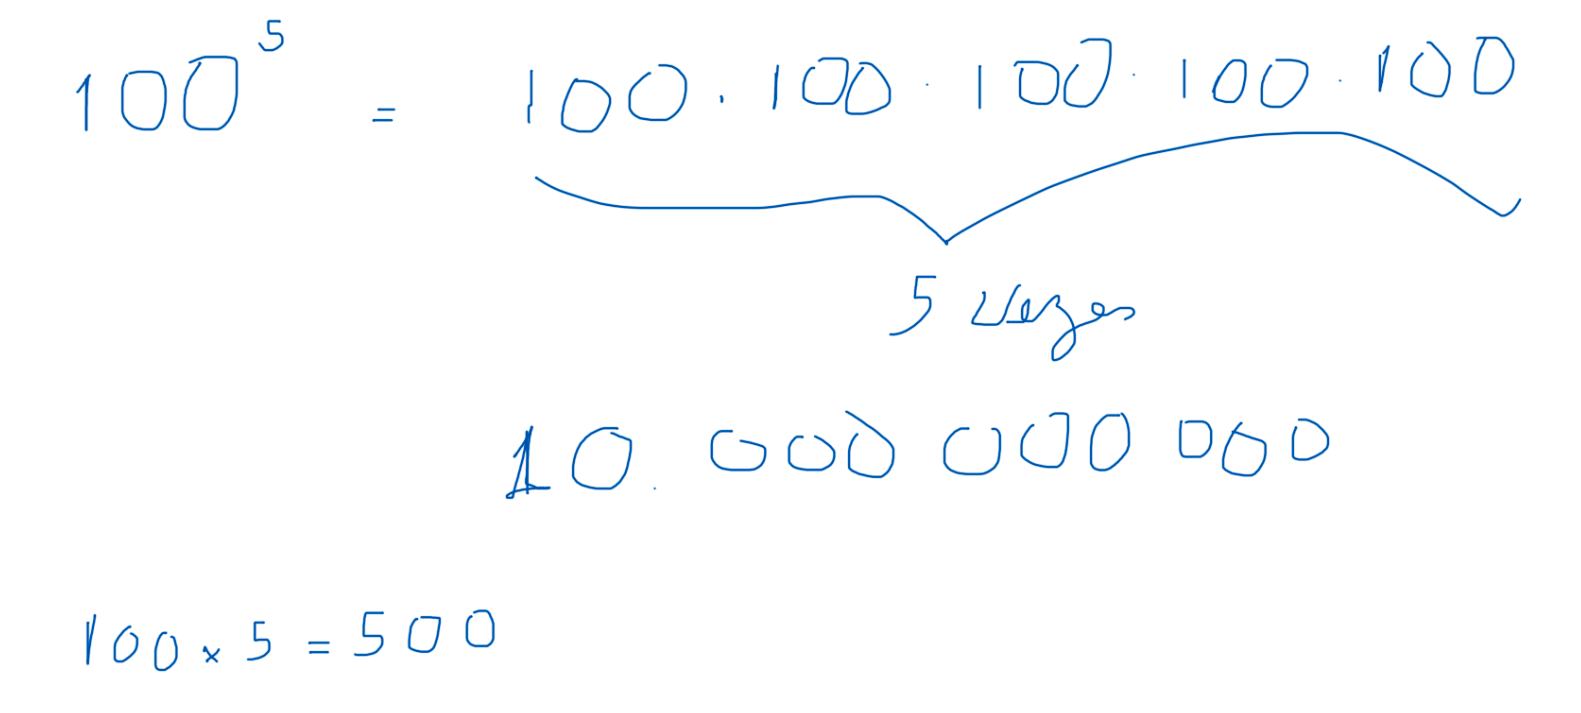 100⁵ = 100 . 100 . 100 . 100 . 100
5 vezes
10. 000 000 000
100 × 5 = 500